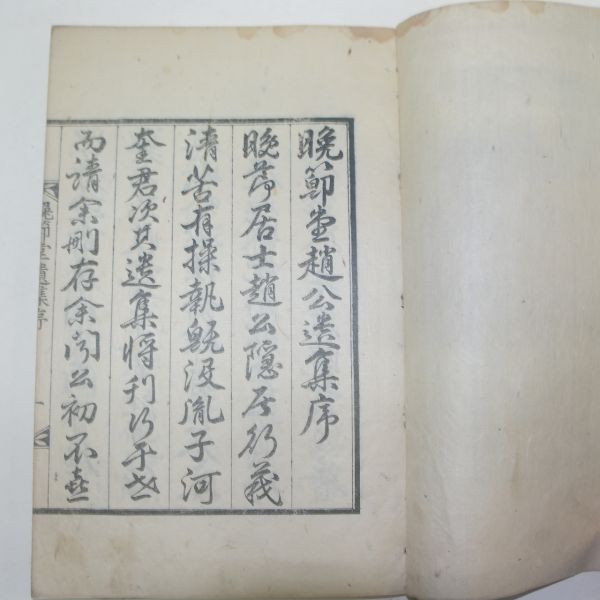 晩節堂趙公遺集序
晩節居士趙公隱居行義
淸苦有操執旣沒胤子河
奎君次其遺集將刊行于世
而請余刪存余聞公初不喜
晩節堂遺集序
一